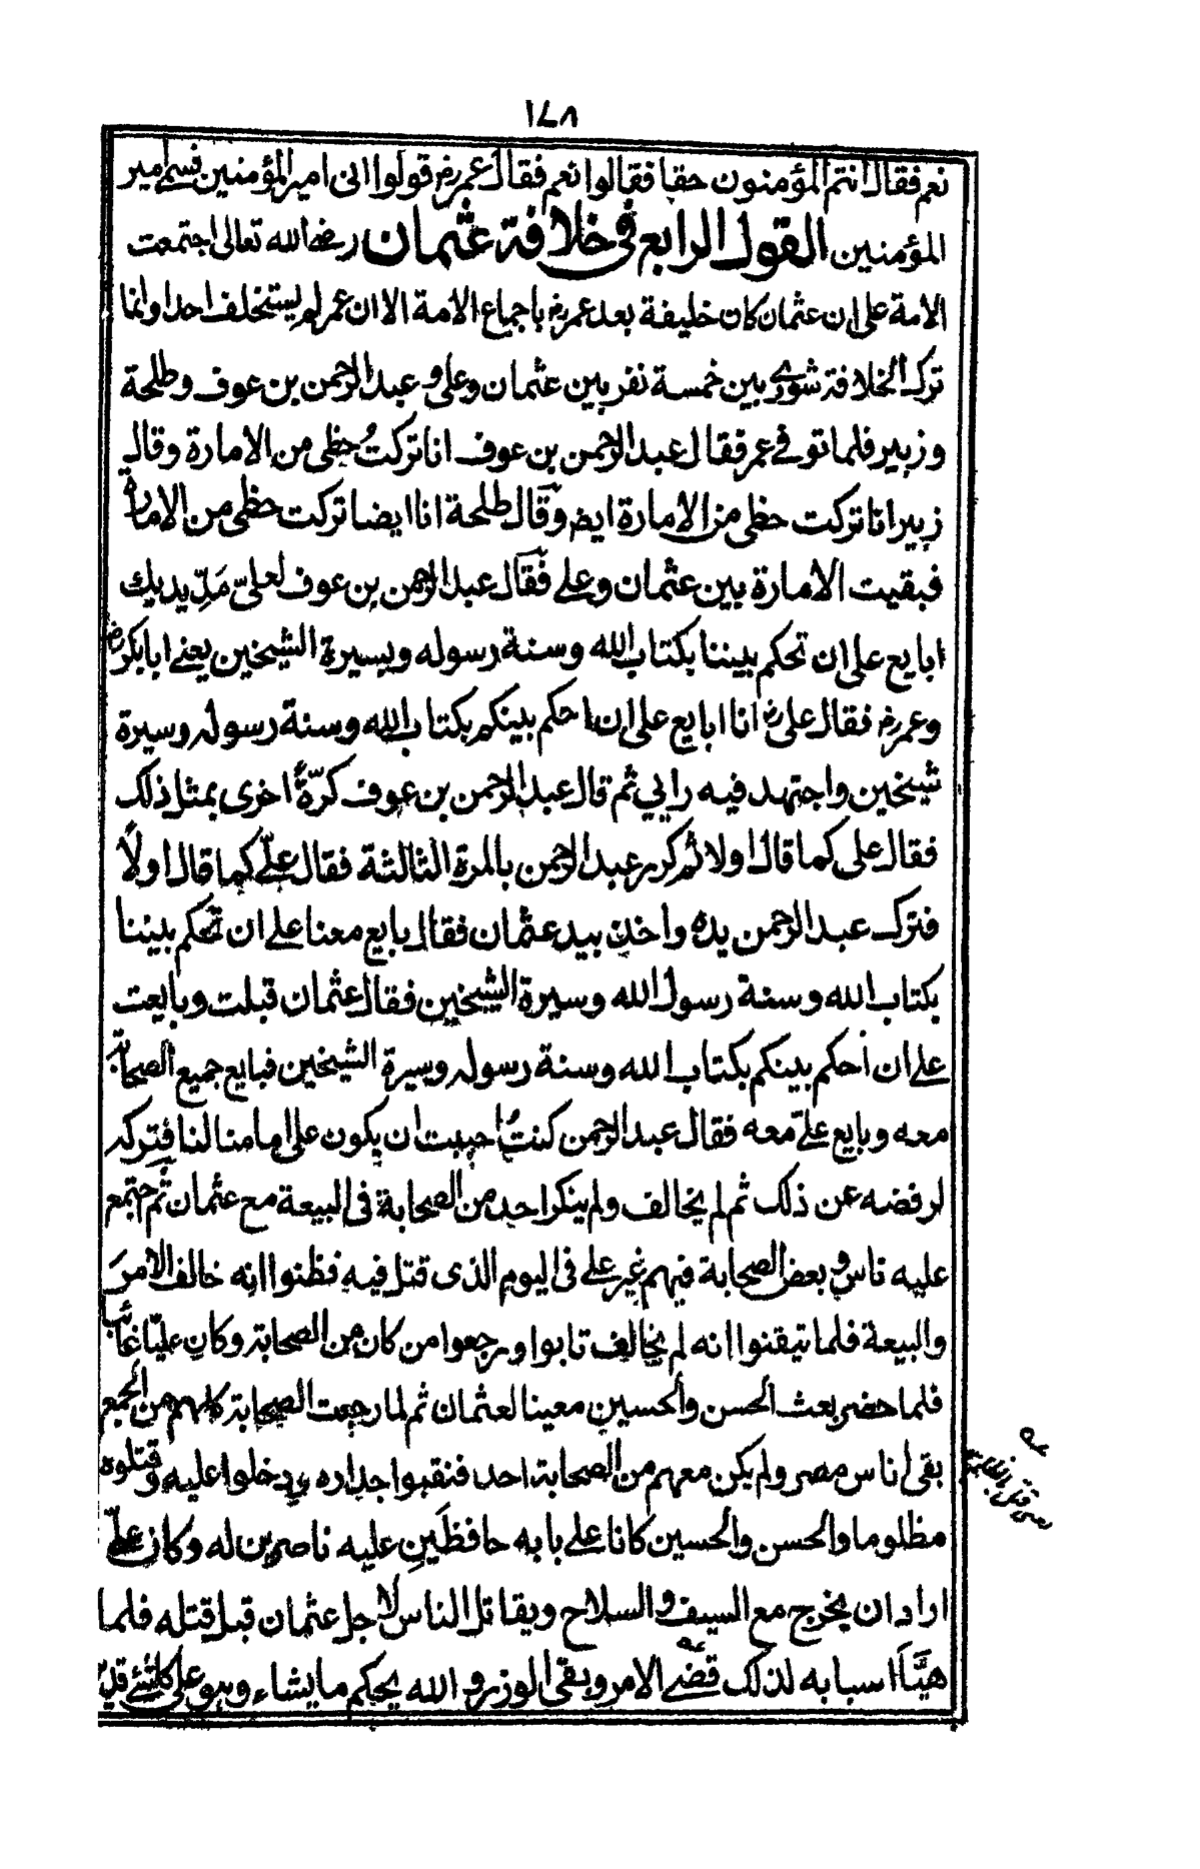 ١٤٨
نعم فقال انتم المؤمنون حقا فقالوا نعم فقال عمر رض قولوا انى امير المؤمنين فسمى امير
المؤمنين القول الرابع فى خلافة عثمان رضى الله تعالى اجتمعت
الامة على ان عثمان كان خليفة بعد عمر رض باجماع الامة الا ان عمر لم يستخلف احدا وانما
ترك الخلافة شورى بين خمسة نفر بين عثمان وعلى و عبد الرحمن بن عوف وطلحة
وزبير فلما توفى عمر فقال عبد الرحمن بن عوف انا تركتُ حظى من الامارة وقال
زبير انا تركت حظى من الامارة ايض وقال طلحة انا ايضا تركت حظى من الامارة
فبقيت الامارة بين عثمان وعلى فقال عبد الرحمن بن عوف لعلىّ مَدِّ يديك
ابايع على ان تحكم بيننا بكتاب الله وسنة رسوله وبسيرة الشيخين يعنى ابا بكر رض
وعمر رض فقال على رض انا ابايع على ان احكم بينكم بكتاب الله وسنة رسوله وسيرة
شيخين واجتهد فيه رايي ثم قال عبد الرحمن بن عوف كرّةً اخرى بمثل ذلك
فقال على كما قال اولا ثم كرر عبد الرحمن بالمرة الثالثة فقال علىّ كما قال اولاً
فترك عبد الرحمن يده واخذ بيد عثمان فقال بايع معنا على ان تحكم بيننا
بكتاب الله وسنة رسول الله وسيرة الشيخين فقال عثمان قبلت وبايعت
على ان أحكم بينكم بكتاب الله وسنة رسوله وسيرة الشيخين فبايع جميع الصحابة
معه وبايع علىّ معه فقال عبد الرحمن كنتُ احببت ان يكون على اما منا لنا فتركه
لرفضه عن ذلك ثم لم يخالف ولم ينكر احد من الصحابة فى البيعة مع عثمان ثم اجتمع
عليه ناس و بعض الصحابة فيهم غير على فى اليوم الذى قتل فيه فظنوا انه خالف الامرَ
والبيعة فلما تيقنوا انه لم يخالف تابوا و رجعوا من كان من الصحابة وكان عليّا غائب
فلما حضر بعث الحسن والحسين معينا لعثمان ثم لما رجعت الصحابة كلهم من الجمع
بقى اناس مصر ولم يكن معهم من الصحابة احد فنقبوا جداره ودخلوا عليه وقتلوه
مظلوما والحسن والحسين كانا على بابه حافظَينِ عليه ناصرين له وكان علىّ
اراد ان يخرج مع السيف والسلاح ويقاتل الناس لاجل عثمان قبل قتله فلما
هيَّأَ اسبابه لذلك قضى الامر وبقى الوزر و الله يحكم ما يشاء وهو على كل شئ قدير